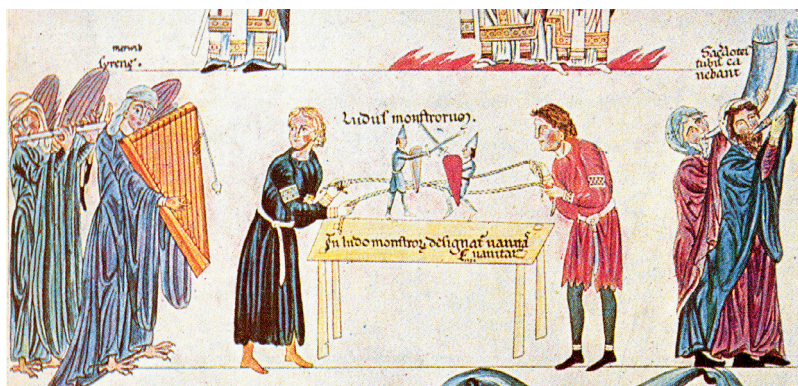 Syrenę.
Sacerdotes
tubis ca
nebant
Ludus monstrorum.
In ludo monstrorum designatur vanitas
vanitatum